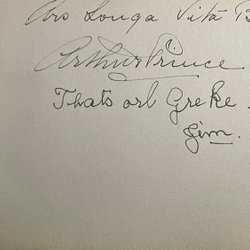 Ars Longa Vita B
Arthur Prince
Thats orl Greke.
Jim.